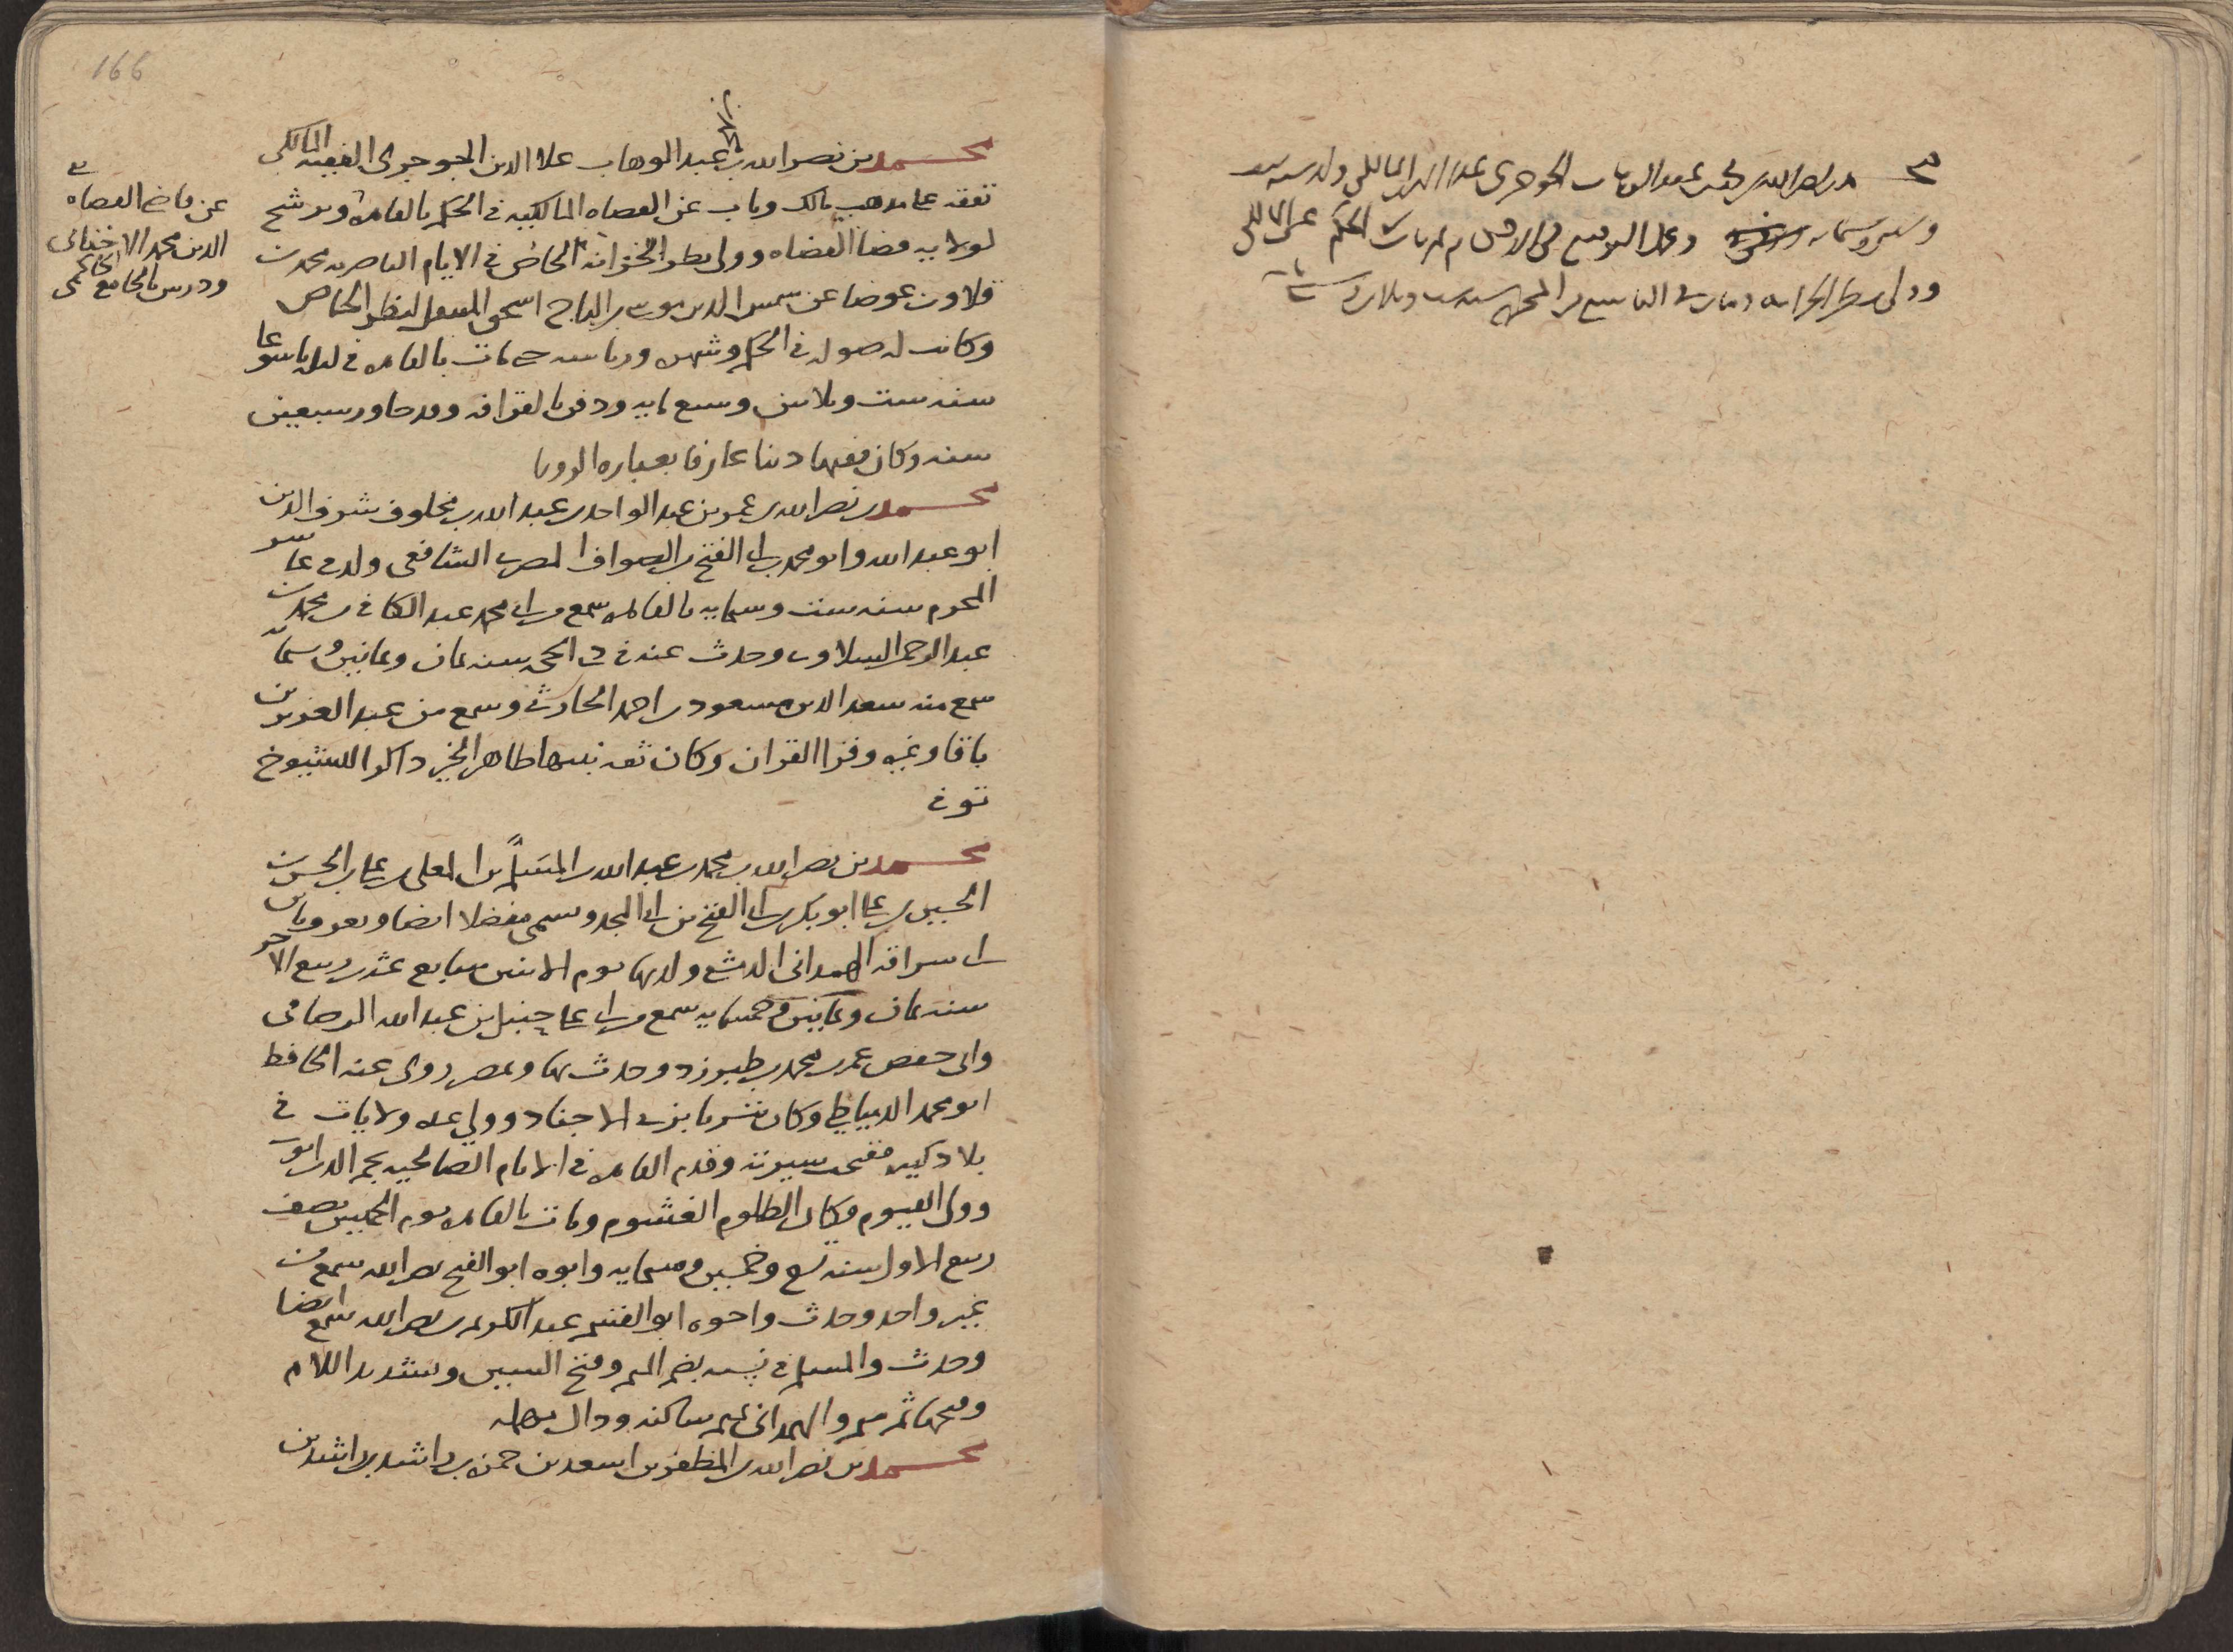 محمد بن نصر الله بن عبد الوهاب
وستماية وعمل التوقيع ثم ناب الحكم عن المالكي
وولى نظر الخزانه ومات في التاسع من المحرم سنه ست وثلاثين
166
محمد بن نصر الله بن عبد الوهاب علا الدين الجوجرى الفقيه المالكى
تفقه على مذهب مالك وناب عن القضاه المالكيه فى الحكم بالقاهرة وترشح
لولايه قضا القضاه وولى نظر الخزانه الخاص فى الايام الناصريه محمد بن
قلاون عوضا عن شمس الدين موسى بن التاج اسحق المنتقل لنظر الخاص
وكانت له صوله فى الحكم وشهره ورياسه حتى مات بالقاهره فى ليله تاسوعا
سنه ست وثلاثين وسبع مايه ودفن بالقرافه وقد جاوز سبعين
سنه وكان فقيها دينا عارفا بعباره الرويا
عن قاضى القضاه تقى
الدين محمد الاخنائى
ودرس بالجامع الحاكمى
محمد بن نصر الله بن عمر بن عبد الواحد بن عبد الله بن مخلوف شرف الدين
ابو عبد الله وابو محمد بن ابى الفتح بن الصواف المصرى الشافعى ولد فى عاشر
المحرم سنه ست وستمايه بالقاهره سمع من ابى محمد عبد الكافى بن محمد بن
عبد الرحمن السلاوى وحدث عنه فى ذى الحجه سنه ثمان وثمانين وستمايه
سمع منه سعد الدين مسعود بن احمد الحارثى وسمع من عبد العزيز بن
باقا وغيره وقرا القران وكان ثقه نبيها ظاهر الخير ذاكرا للشيوخ
توفى
محمد بن نصر الله بن محمد بن عبد الله بن المسلم بن المعلى بن على بن الحسن بن
الحسين بن على ابو بكر بن ابى الفتح بن ابى المجد وسمى مفضلا ايضا ويعرف بابن
ابى سراقه الهمدانى الدمشقى ولد بها يوم الاثنين سابع عشر ربيع الاخر
سنه ثمان وثمانين وخمسمايه سمع من ابى على حنبل بن عبد الله الرصافى
وابى حفص عمر بن محمد بن طبرزد وحدث بها وبمصر روى عنه الحافظ
ابو محمد الدمياطى وكان متزييا بزى الاجناد وولى عده ولايات فى
بلاد كثيره فقبحت سيرته وقدم القاهره فى الايام الصالحيه نجم الدين ايوب
وولى الفيوم فكان الظلوم الغشوم ومات بالقاهره يوم الخميس نصف
ربيع الاول سنه تسع وخمسين وستمايه وابوه ابو الفتح نصر الله سمع من
غير واحد وحدث واخوه ابو الفتح عبد الكريم بن نصر الله سمع ايضا
وحدث والمسلم فى نسبه بضم الميم وفتح السين وتشديد اللام
وفتحها ثم ميم والهمدانى بميم ساكنه ودال مهمله
محمد بن نصر الله بن المظفر بن اسعد بن حمزه بن راشد بن راشد بن